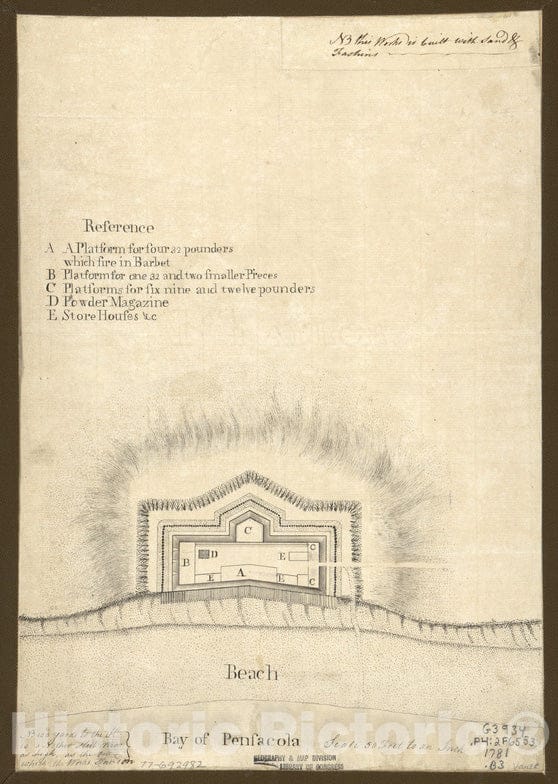 NB this Works is built with Sand &
Fashins
Reference
A A Platform for four 32 pounders
which fire in Barbet
B Platform for one 32 and two smaller Pieces
C Platforms for six nine and twelve pounders
D Powder Magazine
E Store Houses &c
C
B D E C
E A E C
Beach
Bay of Pensacola
Scale 50 Feet to an Inch
NB 50 yards to the
is another Hill near
as high as the
which the Works
77-692982
GEOGRAPHY & MAP DIVISION
LIBRARY OF CONGRESS
G3934
.P4:2F6S53
1781
.B3 Vault
Historic Pictoric